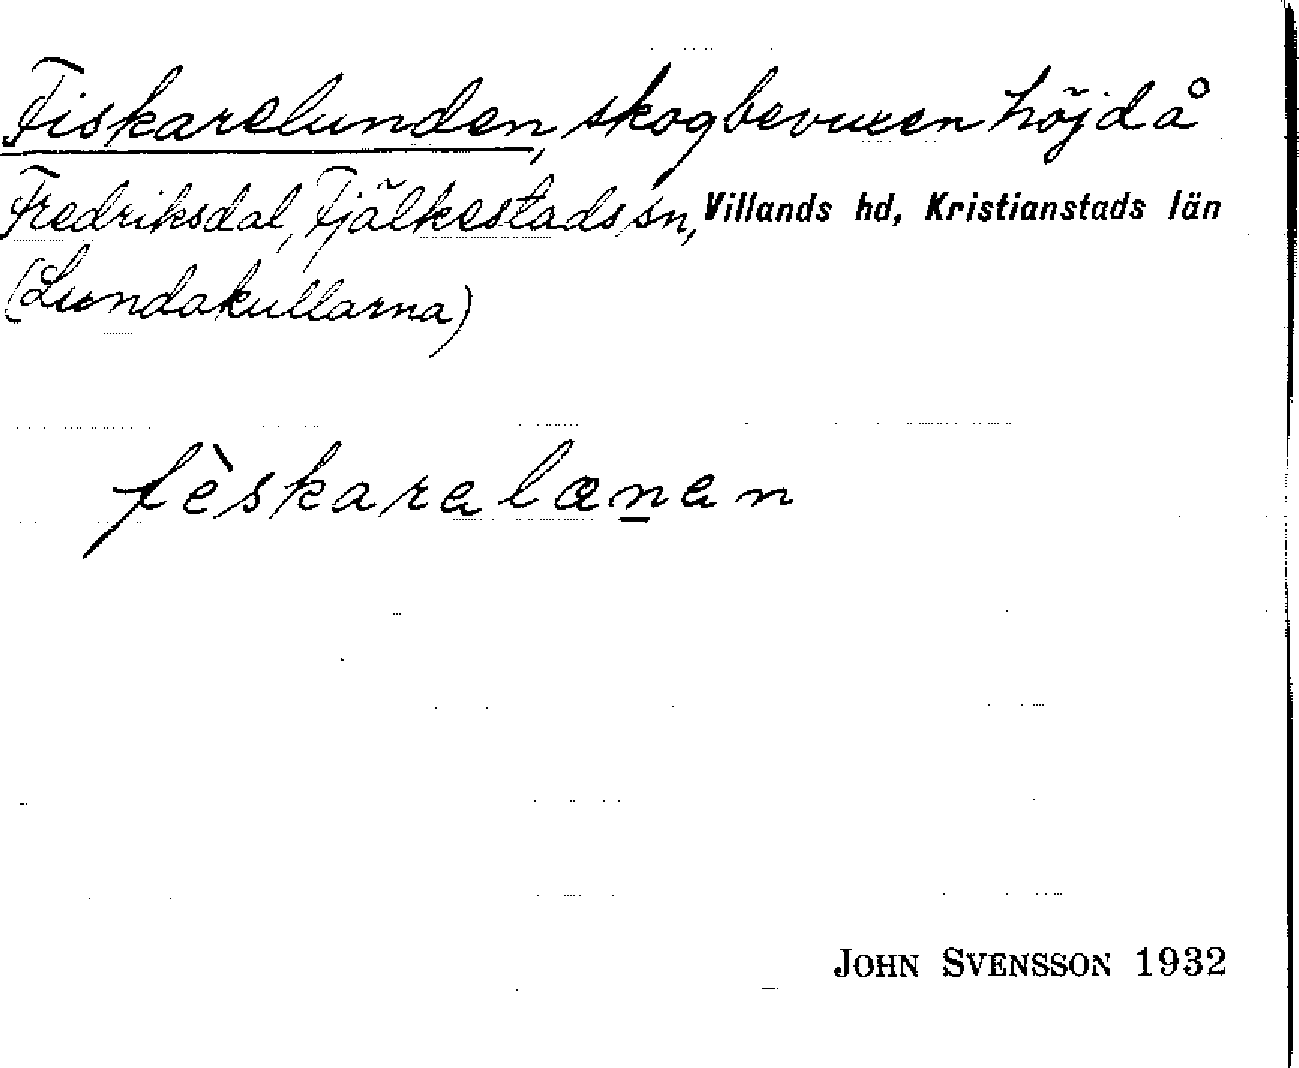 Fiskarelunden, skogbevuxen höjd å
Fredriksdal, Fjälkestads sn, Villands hd, Kristianstads län
(Lundakullarna)
fèskaralœnan
JOHN SVENSSON 1932